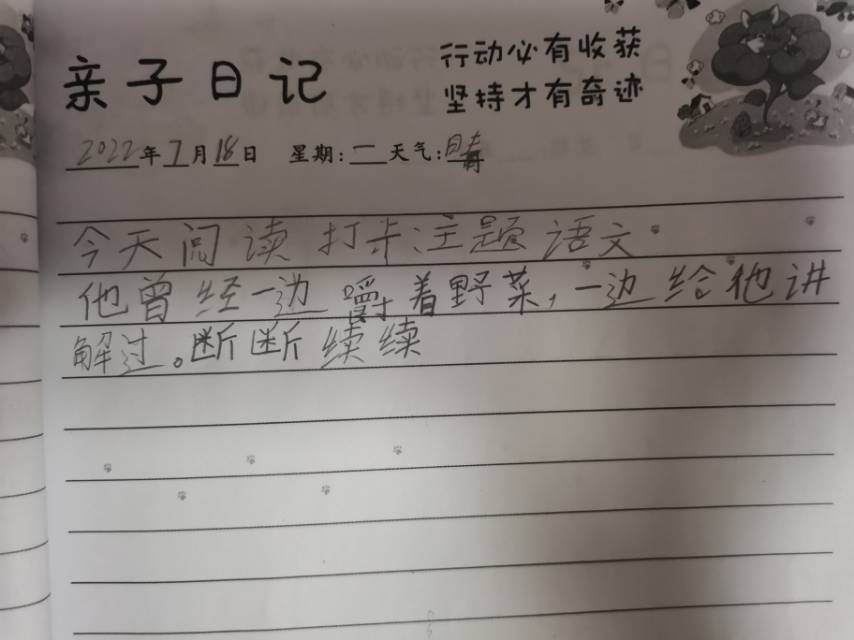 亲子日记
行动必有收获
坚持才有奇迹
2022年7月18日 星期:一天气:晴
今天阅读打卡:主题语文
他曾经一边嚼着野菜,一边给他讲
解过。断断续续